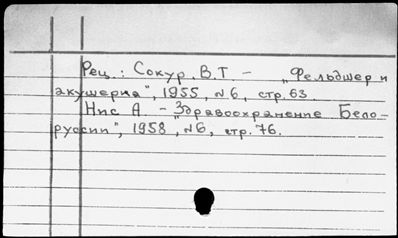 Рец.: Сокур. В.Т – „Фельдшер и
акушерка", 1955, №6, стр. 63.
Нис А – „Здравоохранение Бело-
руссии", 1958, №6, стр. 76.